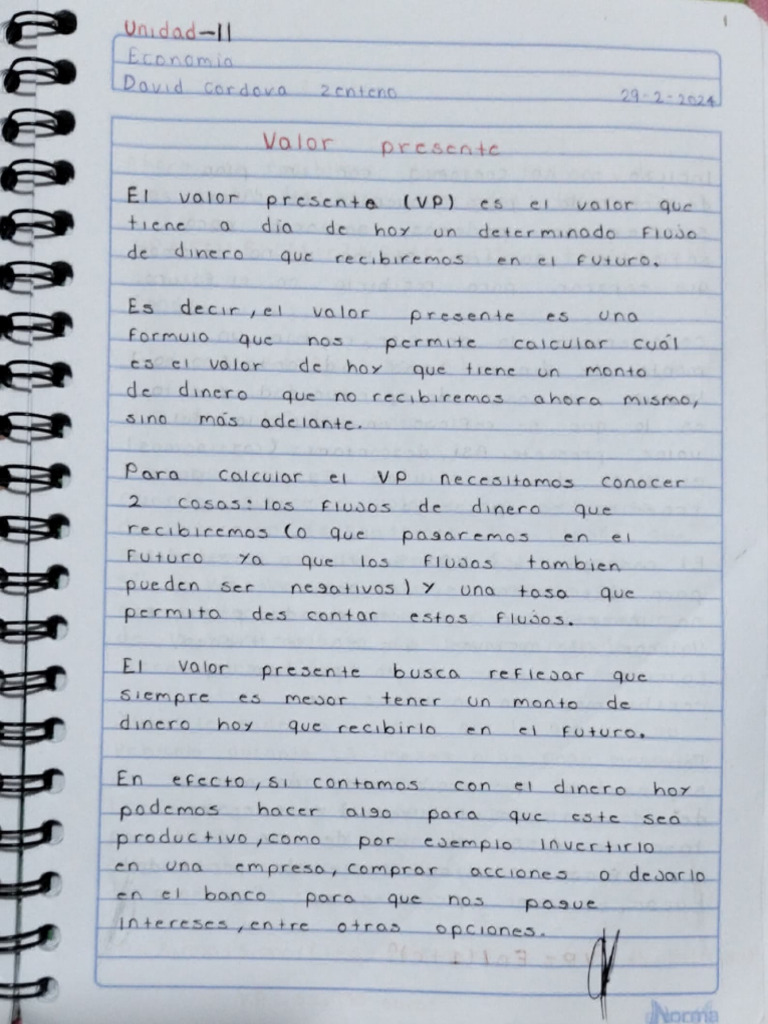 1
Unidad-II
Economia
David Cordova Zenteno 29-2-2024
Valor presente
El valor presente (VP) es el valor que
tiene a dia de hoy un determinado flujo
de dinero que recibiremos en el futuro.
Es decir, el valor presente es una
formula que nos permite calcular cuál
es el valor de hoy que tiene un monto
de dinero que no recibiremos ahora mismo,
sino más adelante.
Para calcular el VP necesitamos conocer
2 cosas: los flujos de dinero que
recibiremos (o que pagaremos en el
futuro ya que los flujos tambien
pueden ser negativos) y una tasa que
permita des contar estos flujos.
El valor presente busca reflejar que
siempre es mejor tener un monto de
dinero hoy que recibirlo en el futuro.
En efecto, si contamos con el dinero hoy
podemos hacer algo para que este sea
productivo, como por ejemplo invertirlo
en una empresa, comprar acciones o dejarlo
en el banco para que nos pague
intereses, entre otras opciones.
Norma